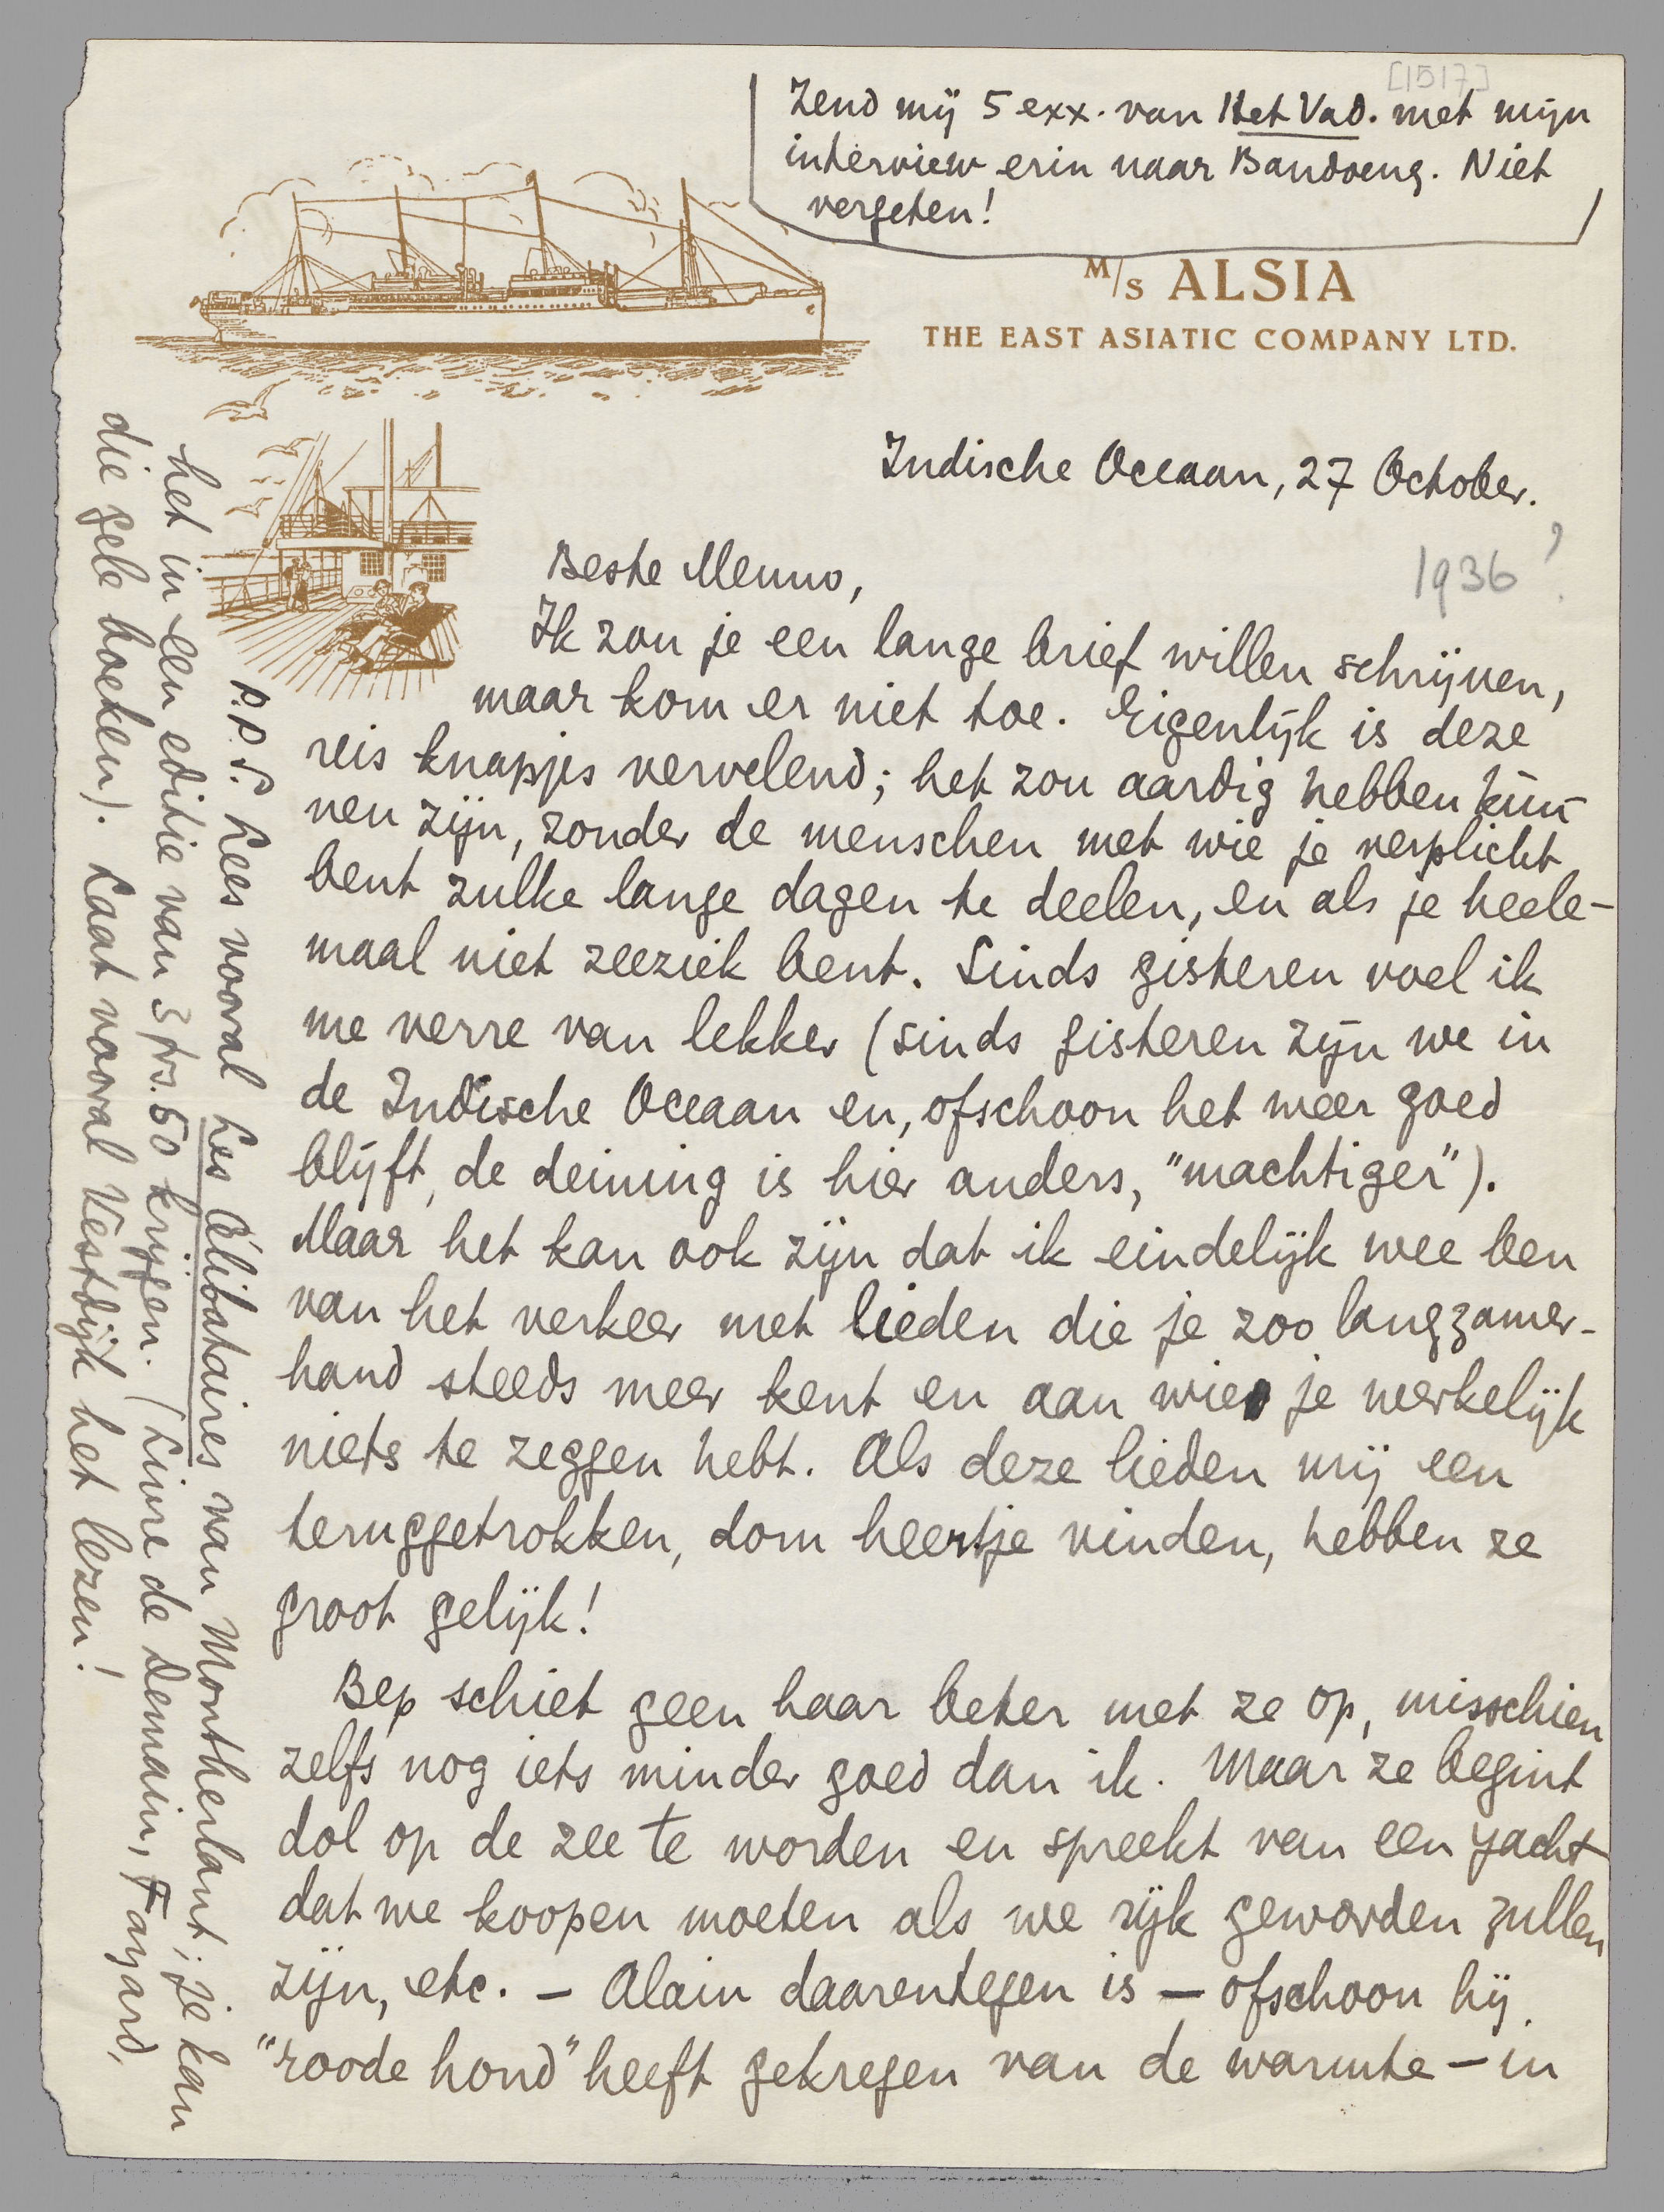 [1517]
Zend mij 5 exx. van Het Vad. met mijn
interview erin naar Bandoeng. Niet
vergeten!
M/S ALSIA
THE EAST ASIATIC COMPANY LTD.
Indische Oceaan, 27 October.
1936?
Beste Menno,
Ik zou je een lange brief willen schrijven,
maar kom er niet toe. Eigenlijk is deze
reis knapjes vervelend; het zou aardig hebben kun-
nen zijn, zonder de menschen met wie je verplicht
bent zulke lange dagen te deelen, en als je heele-
maal niet zeeziek bent. Sinds gisteren voel ik
me verre van lekker (sinds gisteren zijn we in
de Indische Oceaan en, ofschoon het weer goed
blijft, de deining is hier anders, "machtiger").
Maar het kan ook zijn dat ik eindelijk wee ben
van het verkeer met lieden die je zoo langzamer-
hand steeds meer kent en aan wie je werkelijk
niets te zeggen hebt. Als deze lieden mij een
teruggetrokken, dom heertje vinden, hebben ze
groot gelijk!
Bep schiet geen haar beter met ze op, misschien
zelfs nog iets minder goed dan ik. Maar ze begint
dol op de zee te worden en spreekt van een yacht
dat we koopen moeten als we rijk geworden zullen
zijn, etc. – Alain daarentegen is – ofschoon hij
"roode hond" heeft gekregen van de warmte – in
P.P.S. Lees vooral Les Célibataires van Montherlant; je kan
het in een editie van 3 frs. 50 krijgen. (Livre de Demain, Fayard,
die gele boeken). Laat vooral Vestdijk het lezen!